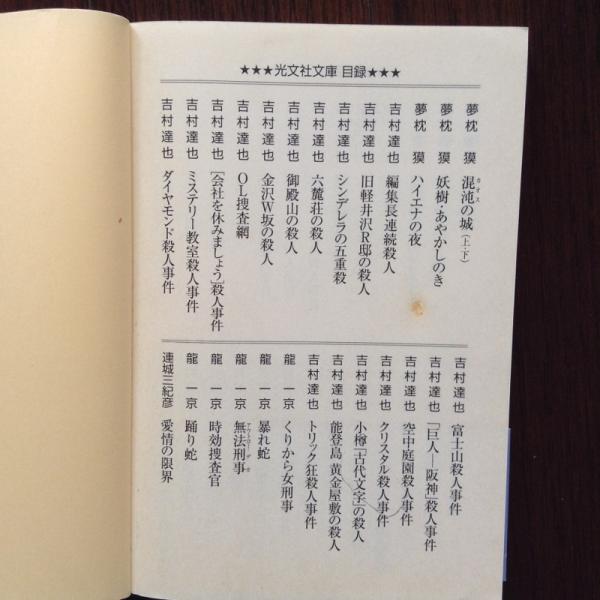 ★★★光文社文庫 目録★★★
夢枕 獏 混沌の城(上・下)
カオス
夢枕 獏 妖樹・あやかしのき
夢枕 獏 ハイエナの夜
吉村達也 編集長連続殺人
吉村達也 旧軽井沢R邸の殺人
吉村達也 シンデレラの五重殺
吉村達也 六麓荘の殺人
吉村達也 御殿山の殺人
吉村達也 金沢W坂の殺人
吉村達也 OL捜査網
吉村達也 [会社を休みましょう]殺人事件
吉村達也 ミステリー教室殺人事件
吉村達也 ダイヤモンド殺人事件
吉村達也 富士山殺人事件
吉村達也 「巨人―阪神」殺人事件
吉村達也 空中庭園殺人事件
吉村達也 クリスタル殺人事件
吉村達也 小樽「古代文字」の殺人
吉村達也 能登島 黄金屋敷の殺人
吉村達也 トリック狂殺人事件
龍 一京 くりから女刑事
龍 一京 暴れ蛇
龍 一京 無法刑事
龍 一京 時効捜査官
龍 一京 踊り蛇
連城三紀彦 愛情の限界